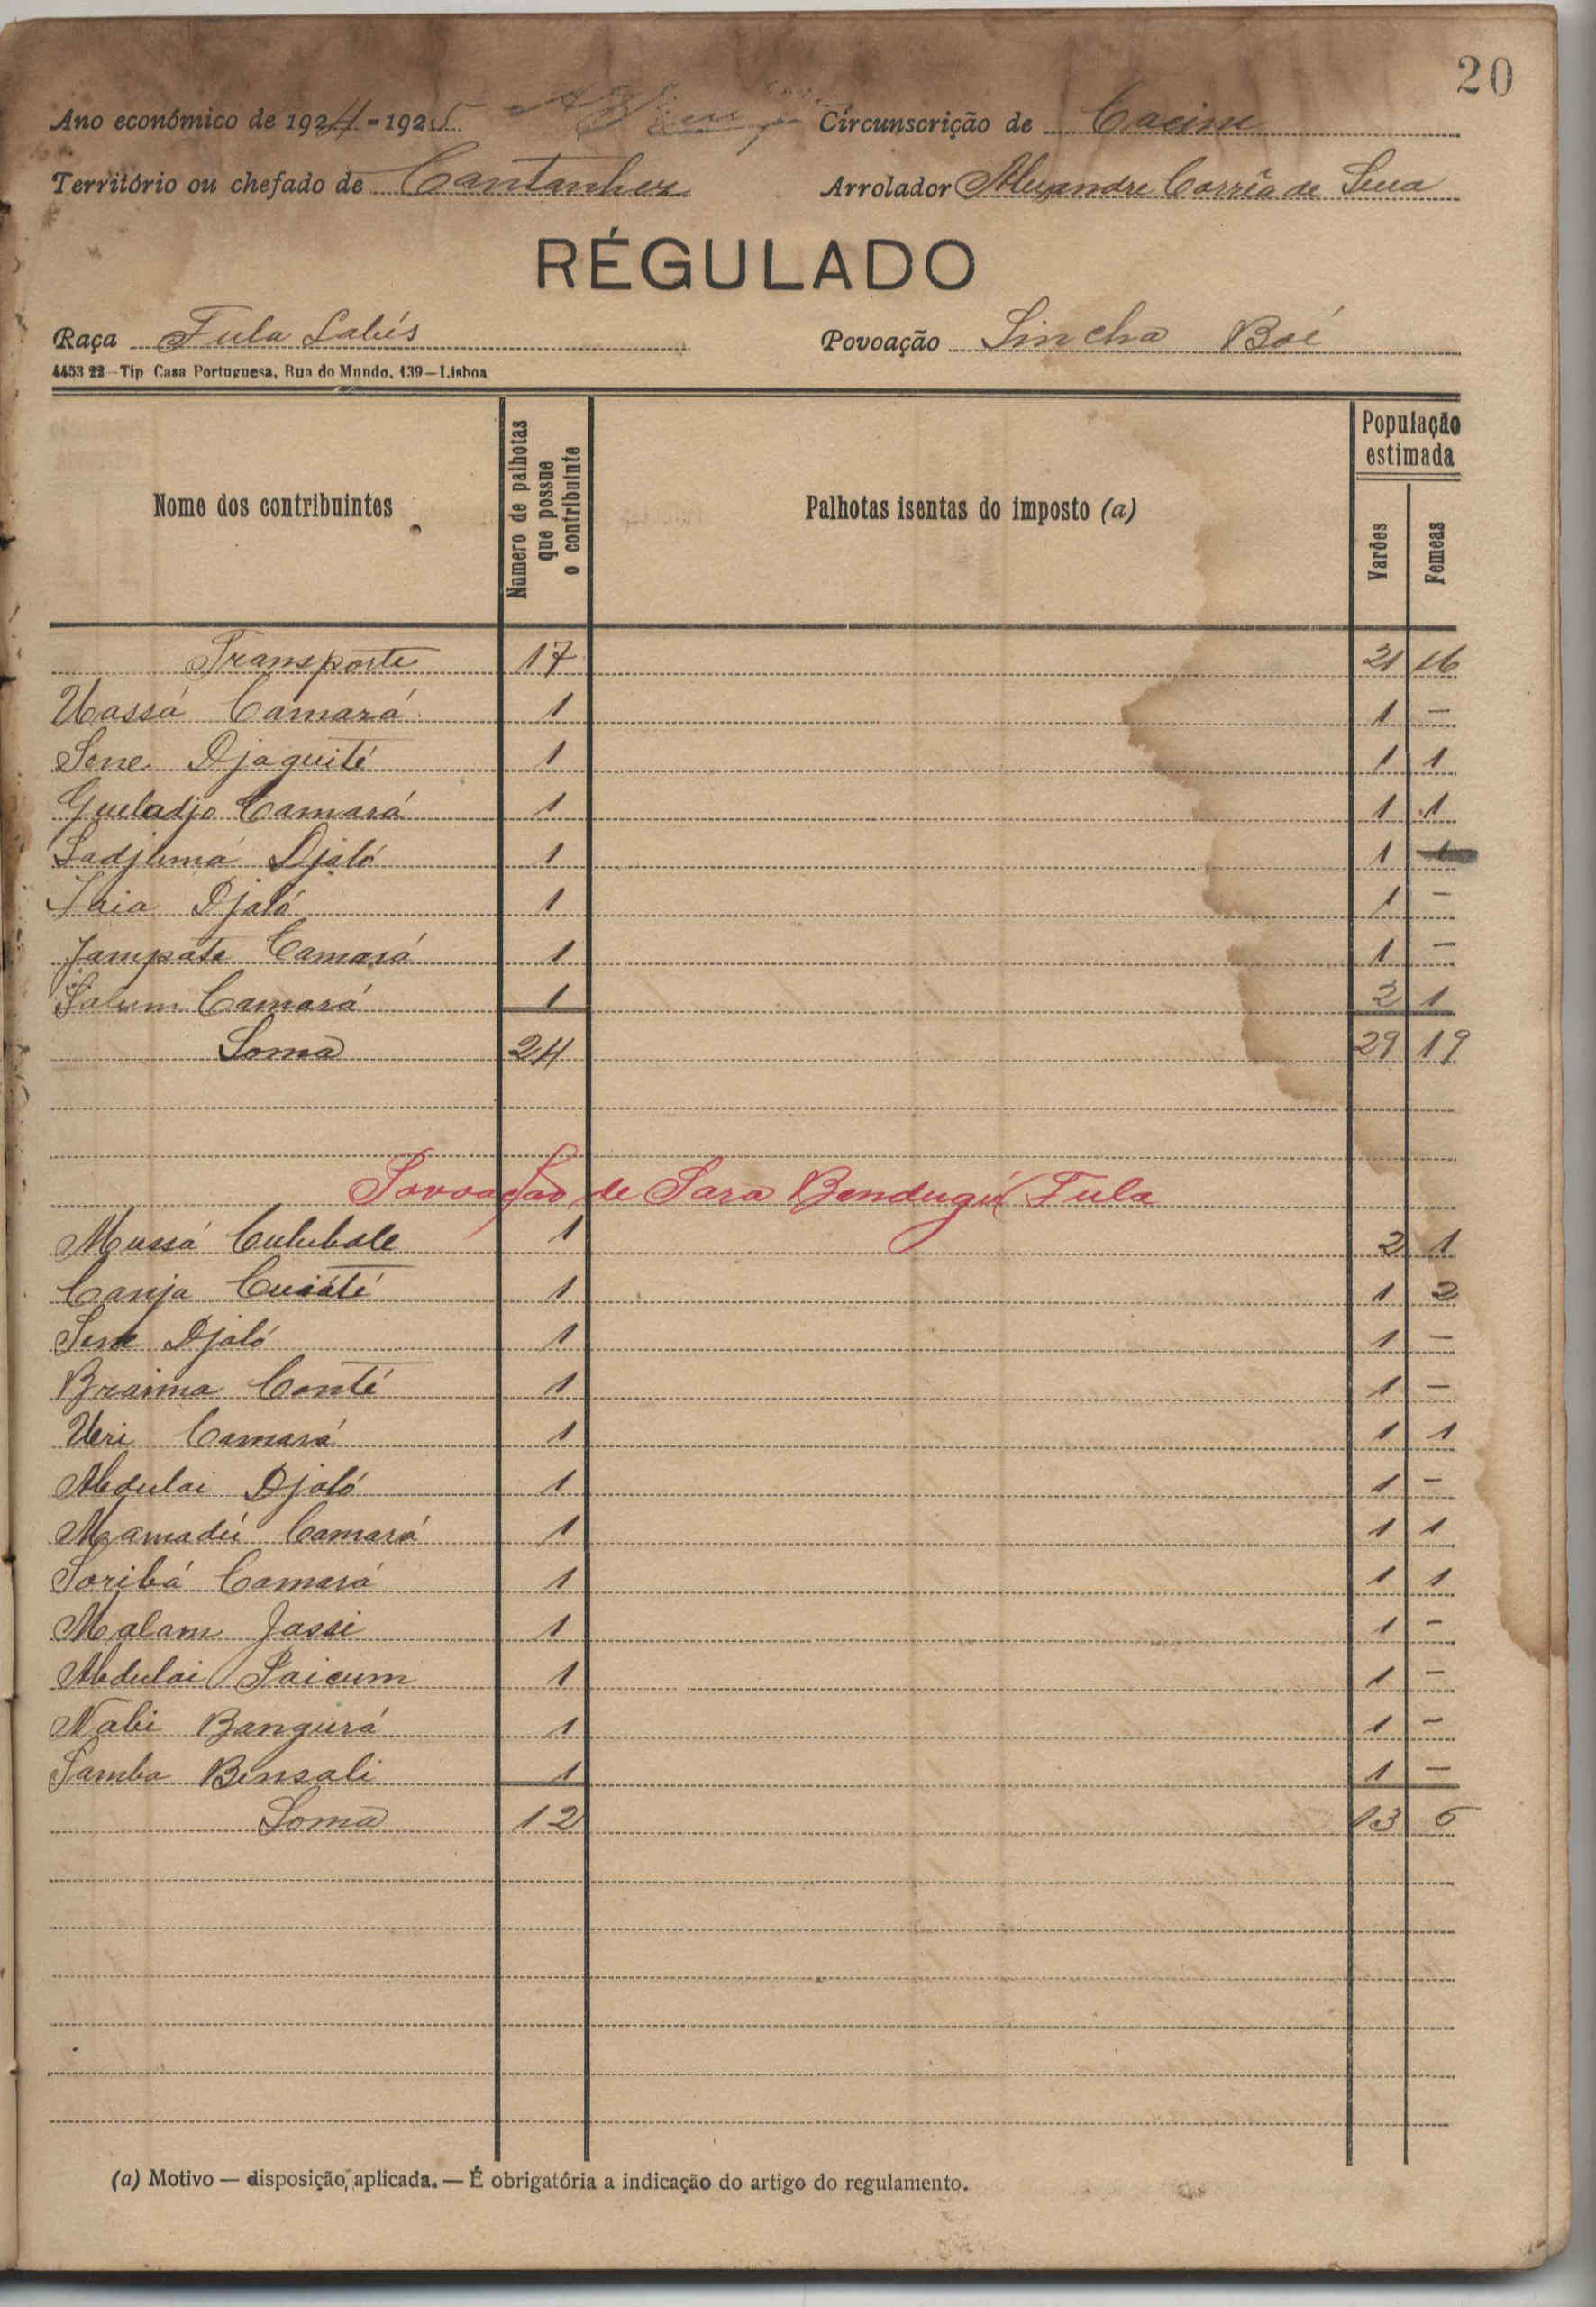 20
Ano económico de 1924-1925 Circunscrição de Cacine
Território ou chefado de Cantanhez Arrolador Alexandre Corrêa de Sena
RÉGULADO
Raça Fula Labés Povoação Sincha Boé
4453 22-Tip Casa Portuguesa, Rua do Mundo, 139-Lisboa
Nome dos contribuintes Número de palhotas que possue o contribuinte Palhotas isentas do imposto (a) População estimada Varões Femeas
Transporte 17 21 16
Uassá Camará 1 1 -
Sene Djaquité 1 1 1
Gueladjo Camará 1 1 1
Sadjumá Djaló 1 1
Iaia Djaló 1 1 -
Jampate Camará 1 1 -
Salum Camará 1 2 1
Soma 24 29 19
Povoação de Sara Bendugú (Fula
Mussá Culubale 1 2 1
Canja Cuiaté 1 1 2
Sene Djaló 1 1 -
Braima Conté 1 1 -
Ueri Camará 1 1 1
Abdulai Djaló 1 1 -
Mamadú Camará 1 1 1
Soribá Camará 1 1 1
Malam Jassi 1 1 -
Abdulai Saicum 1 1 -
Nabi Bangurá 1 1 -
Samba Bensali 1 1 -
Soma 12 13 6
(a) Motivo — disposição, aplicada. — É obrigatória a indicação do artigo do regulamento.